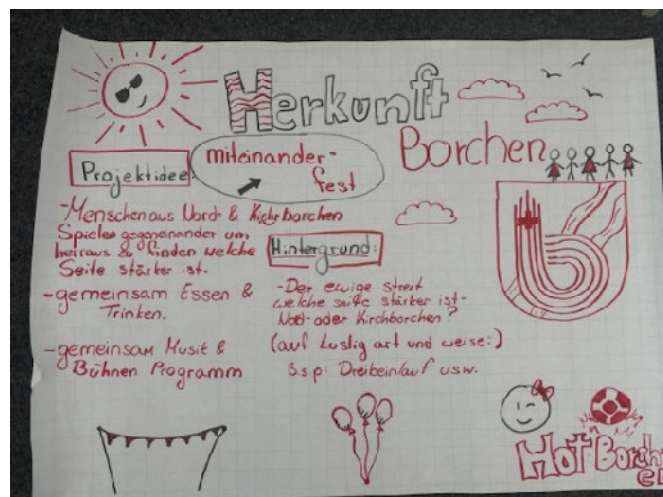 Herkunft
Borchen
Projektidee:
miteinander-
fest
-Menschen aus Nord & Kirchborchen
Spielen gegeneinander um
herraus & finden welche
Seite stärker ist.
-gemeinsam Essen &
Trinken.
-gemeinsam Musik &
Bühnen Programm
Hintergrund:
-Der ewige streit
welche seite stärker ist-
Nord- oder Kirchborchen?
(auf Lustig art und weise:)
z.s.p: Dreibeinlauf usw.
Hot Borch
en